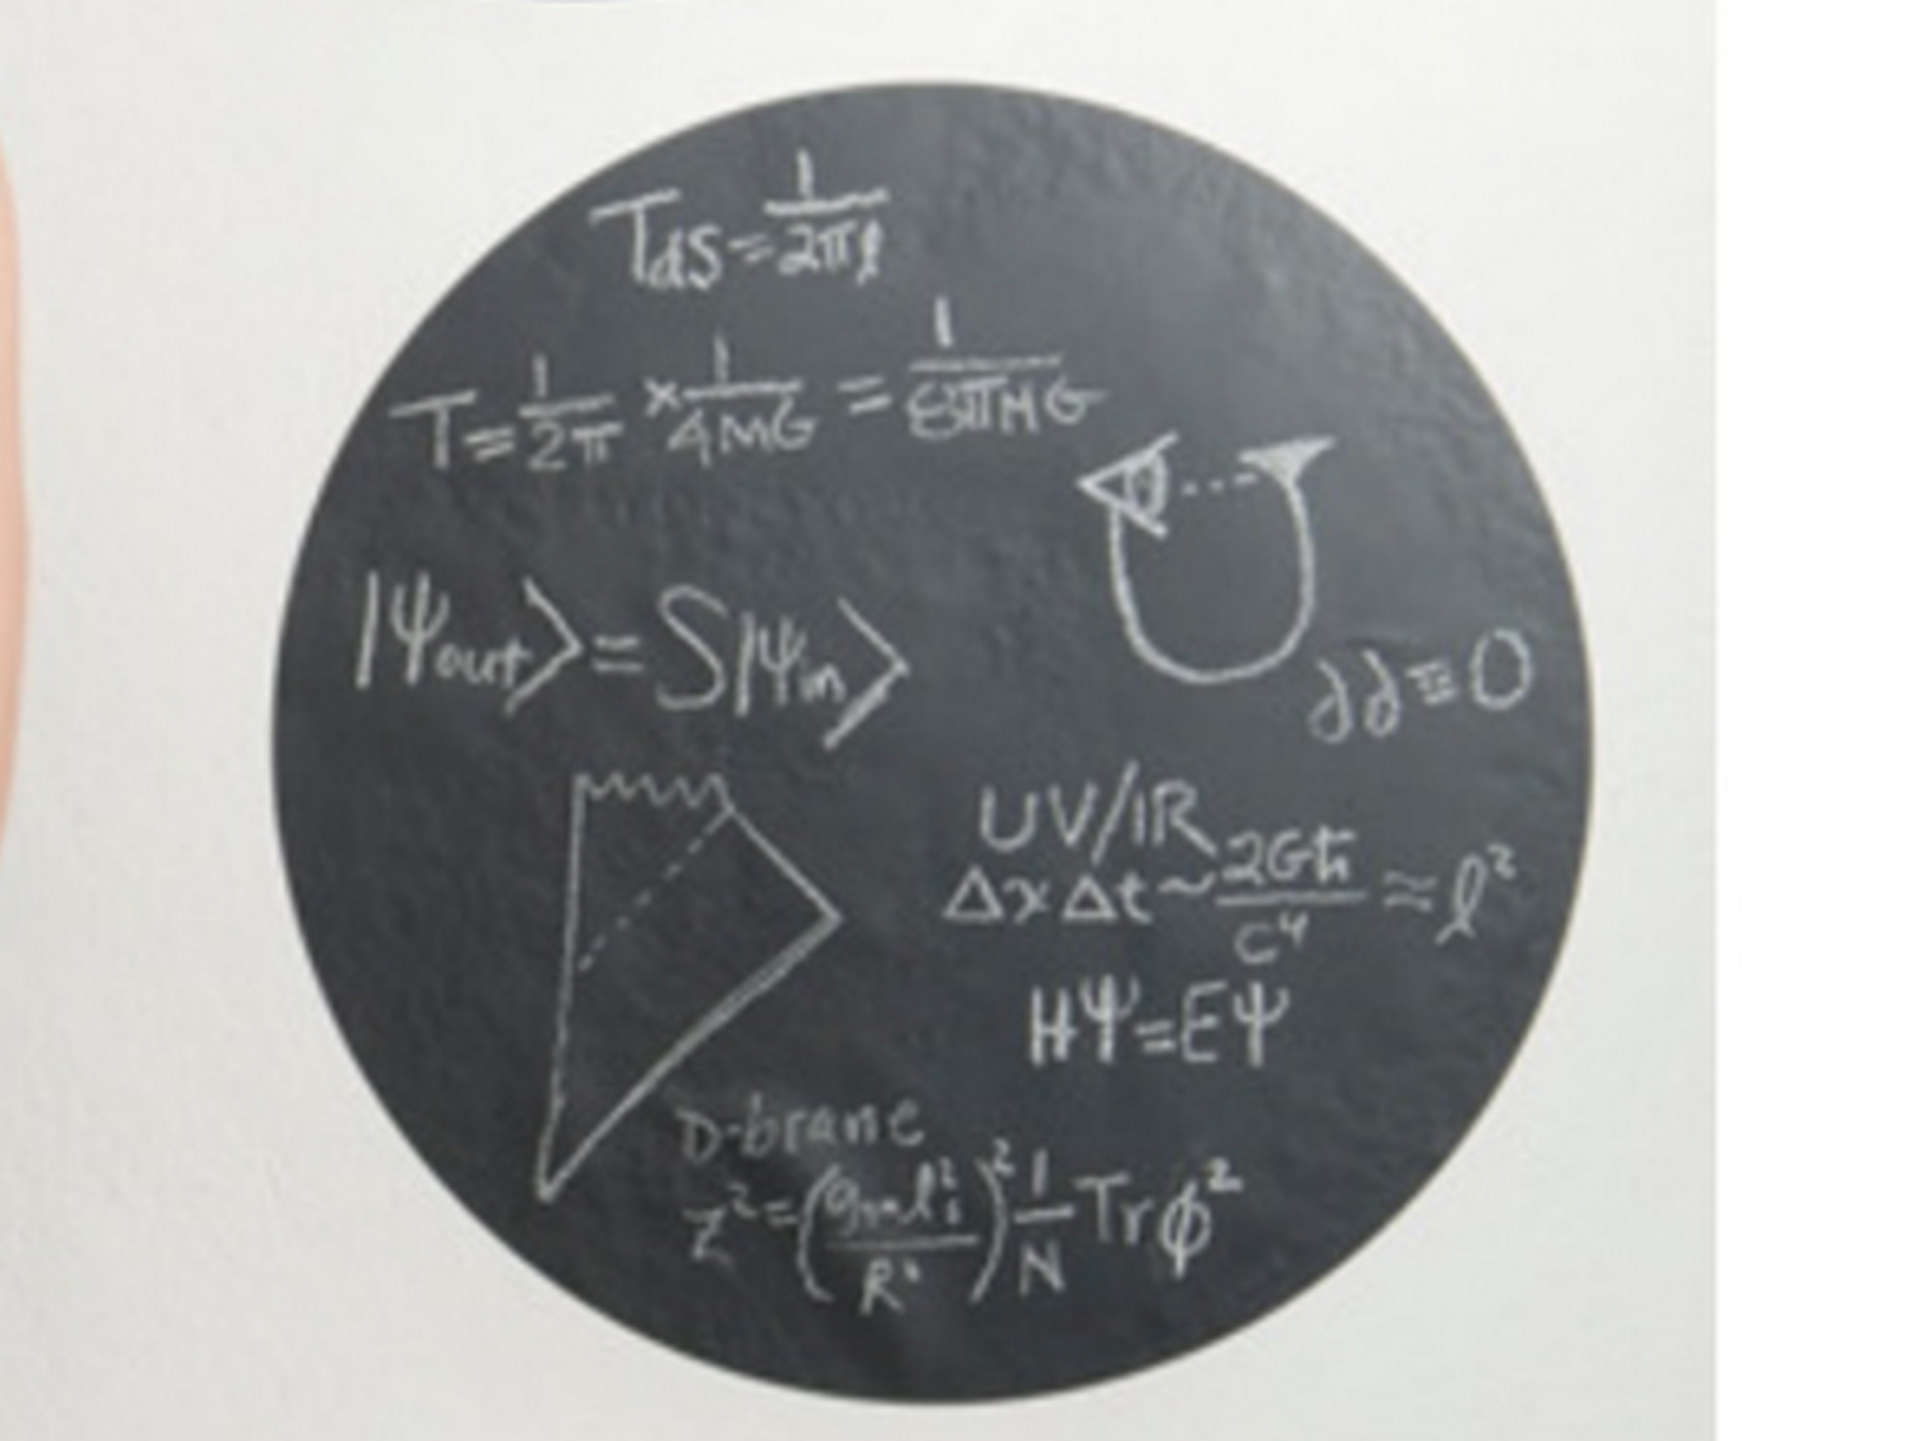 T_dS = 1/2πl
T = 1/2π × 1/4MG = 1/8πMG
|Ψout> = S|Ψin>
∂∂ ≡ 0
UV/IR
Δx Δt ~ 2Għ/c⁴ ≈ l²
HΨ = EΨ
D-brane
z² = ( l²/R² )² 1/N Tr ϕ²